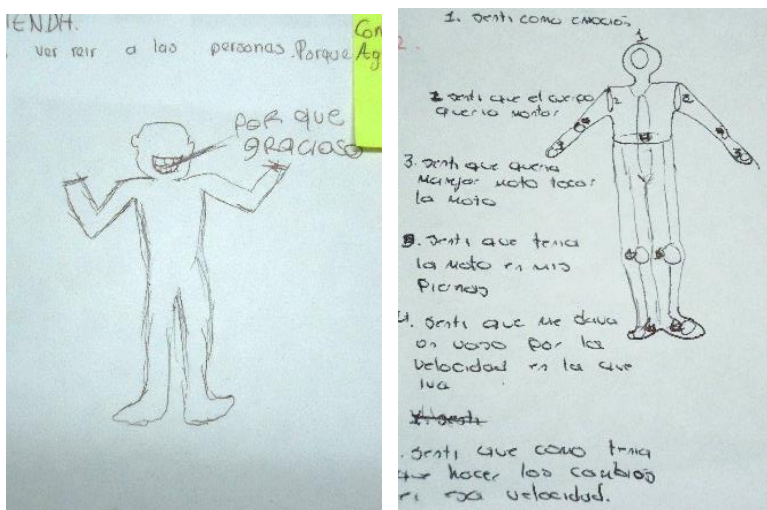 IENDA.
ver reir a las personas. Porque
Con
Ag
POR QUE
GRACIOSO
1. senti como emocion
2.
2 senti que el cuerpo
queria montar
3. senti que queria
manejar moto tocar
la moto
5. senti que tenia
la moto en mis
piernas
4. senti que me dava
un vaso por la
velocidad en la que
iva
senti
senti que como tenia
que hacer los cambios
esa velocidad.
1
2
2
3
3